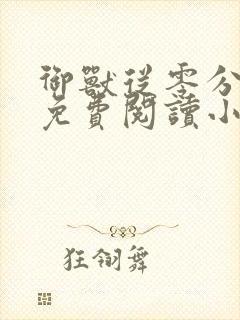 御獸從零分
免費閱讀小
狂翎舞